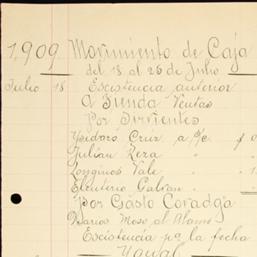 1,909 Movimiento de Caja
del 18 al 25 de Julio
Julio 18 Escistencia anterior
A Tienda Ventas
Por Sirvientes
Ysidoro Cruz a %c $ 0
Julian Zera " "
Longinos Vale " "
Eleuterio Galvan " "
Por Gasto Coradga
Varios Mose al Alamo
Escistencia pa la fecha
Ygual